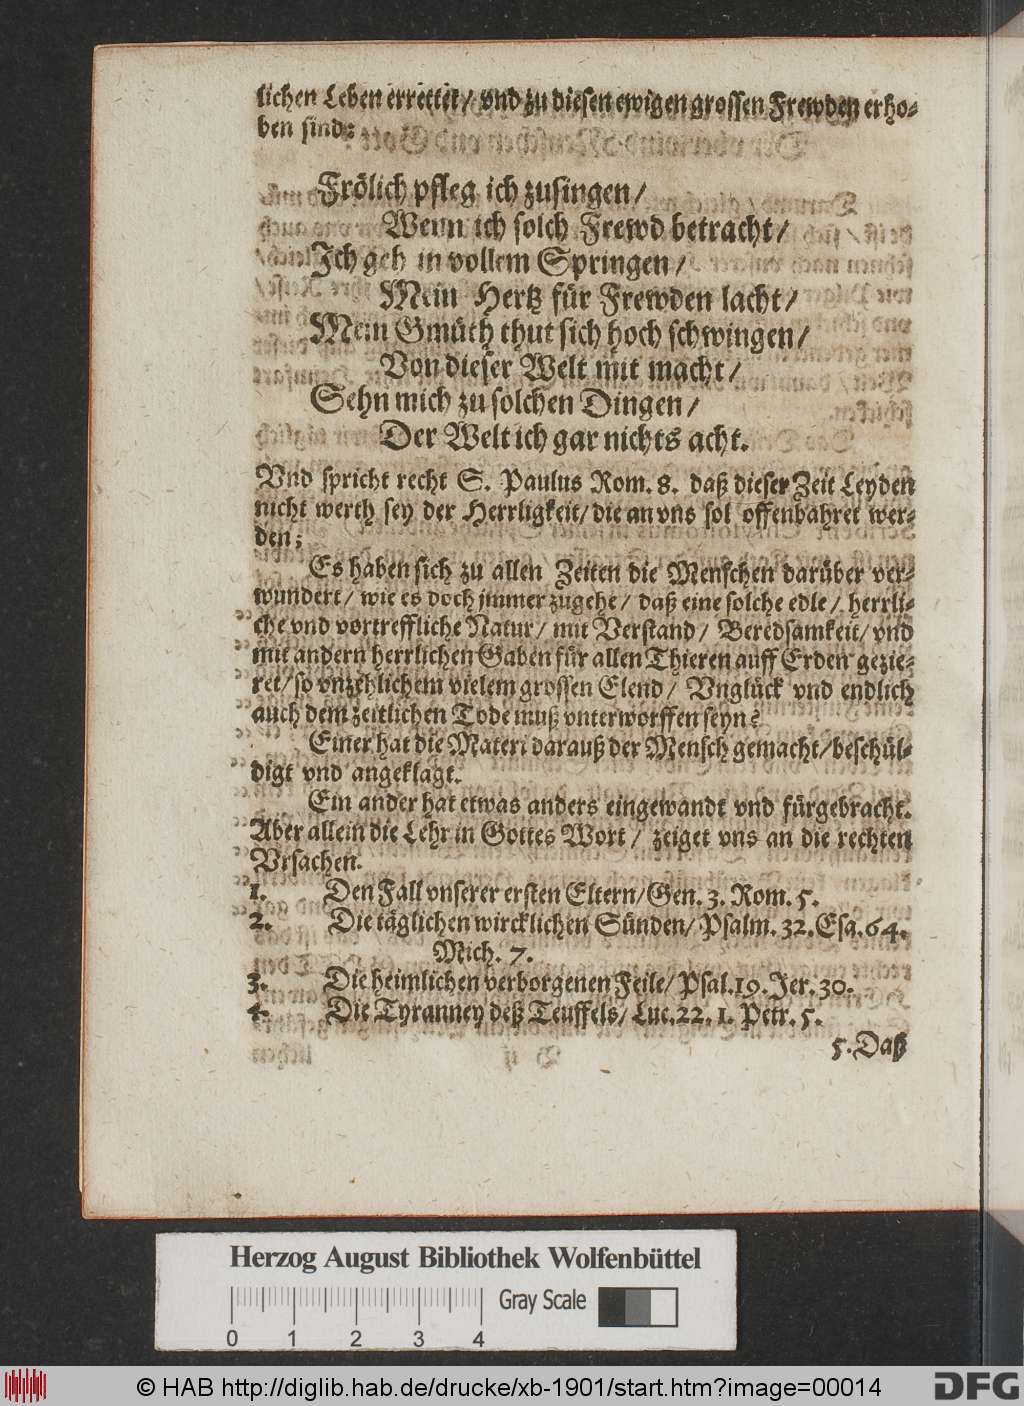 lichen Leben errettet/ vnd zu diesen ewigen grossen Frewden erho-
ben sind:
Frölich pfleg ich zusingen/
Wenn ich solch Frewd betracht/
Ich geh in vollem Springen/
Mein Hertz für Frewden lacht/
Mein Gmüth thut sich hoch schwingen/
Von dieser Welt mit macht/
Sehn mich zu solchen Dingen/
Der Welt ich gar nichts acht.
Vnd spricht recht S. Paulus Rom. 8. daß dieser Zeit Leyden
nicht werth sey der Herrligkeit/ die an vns sol offenbahret wer-
den;
Es haben sich zu allen Zeiten die Menschen darüber ver-
wundert/ wie es doch jmmer zugehe/ daß eine solche edle/ herrli-
che vnd vortreffliche Natur/ mit Verstand/ Beredsamkeit/ vnd
mit andern herrlichen Gaben für allen Thieren auff Erden gezie-
ret/ so vnzehlichem vielem grossen Elend/ Vnglück vnd endlich
auch dem zeitlichen Tode muß vnterworffen seyn?
Einer hat die Materi darauß der Mensch gemacht/ beschül-
digt vnd angeklagt.
Ein ander hat etwas anders eingewandt vnd fürgebracht.
Aber allein die Lehr in Gottes Wort/ zeiget vns an die rechten
Vrsachen.
1. Den Fall vnserer ersten Eltern/ Gen. 3. Rom. 5.
2. Die täglichen wircklichen Sünden/ Psalm. 32. Esa. 64.
Mich. 7.
3. Die heimlichen verborgenen Feile/ Psal. 19. Jer. 30.
4. Die Tyranney deß Teuffels/ Luc. 22. 1. Petr. 5.
5. Daß
Herzog August Bibliothek Wolfenbüttel
Gray Scale
0 1 2 3 4
© HAB http://diglib.hab.de/drucke/xb-1901/start.htm?image=00014
DFG